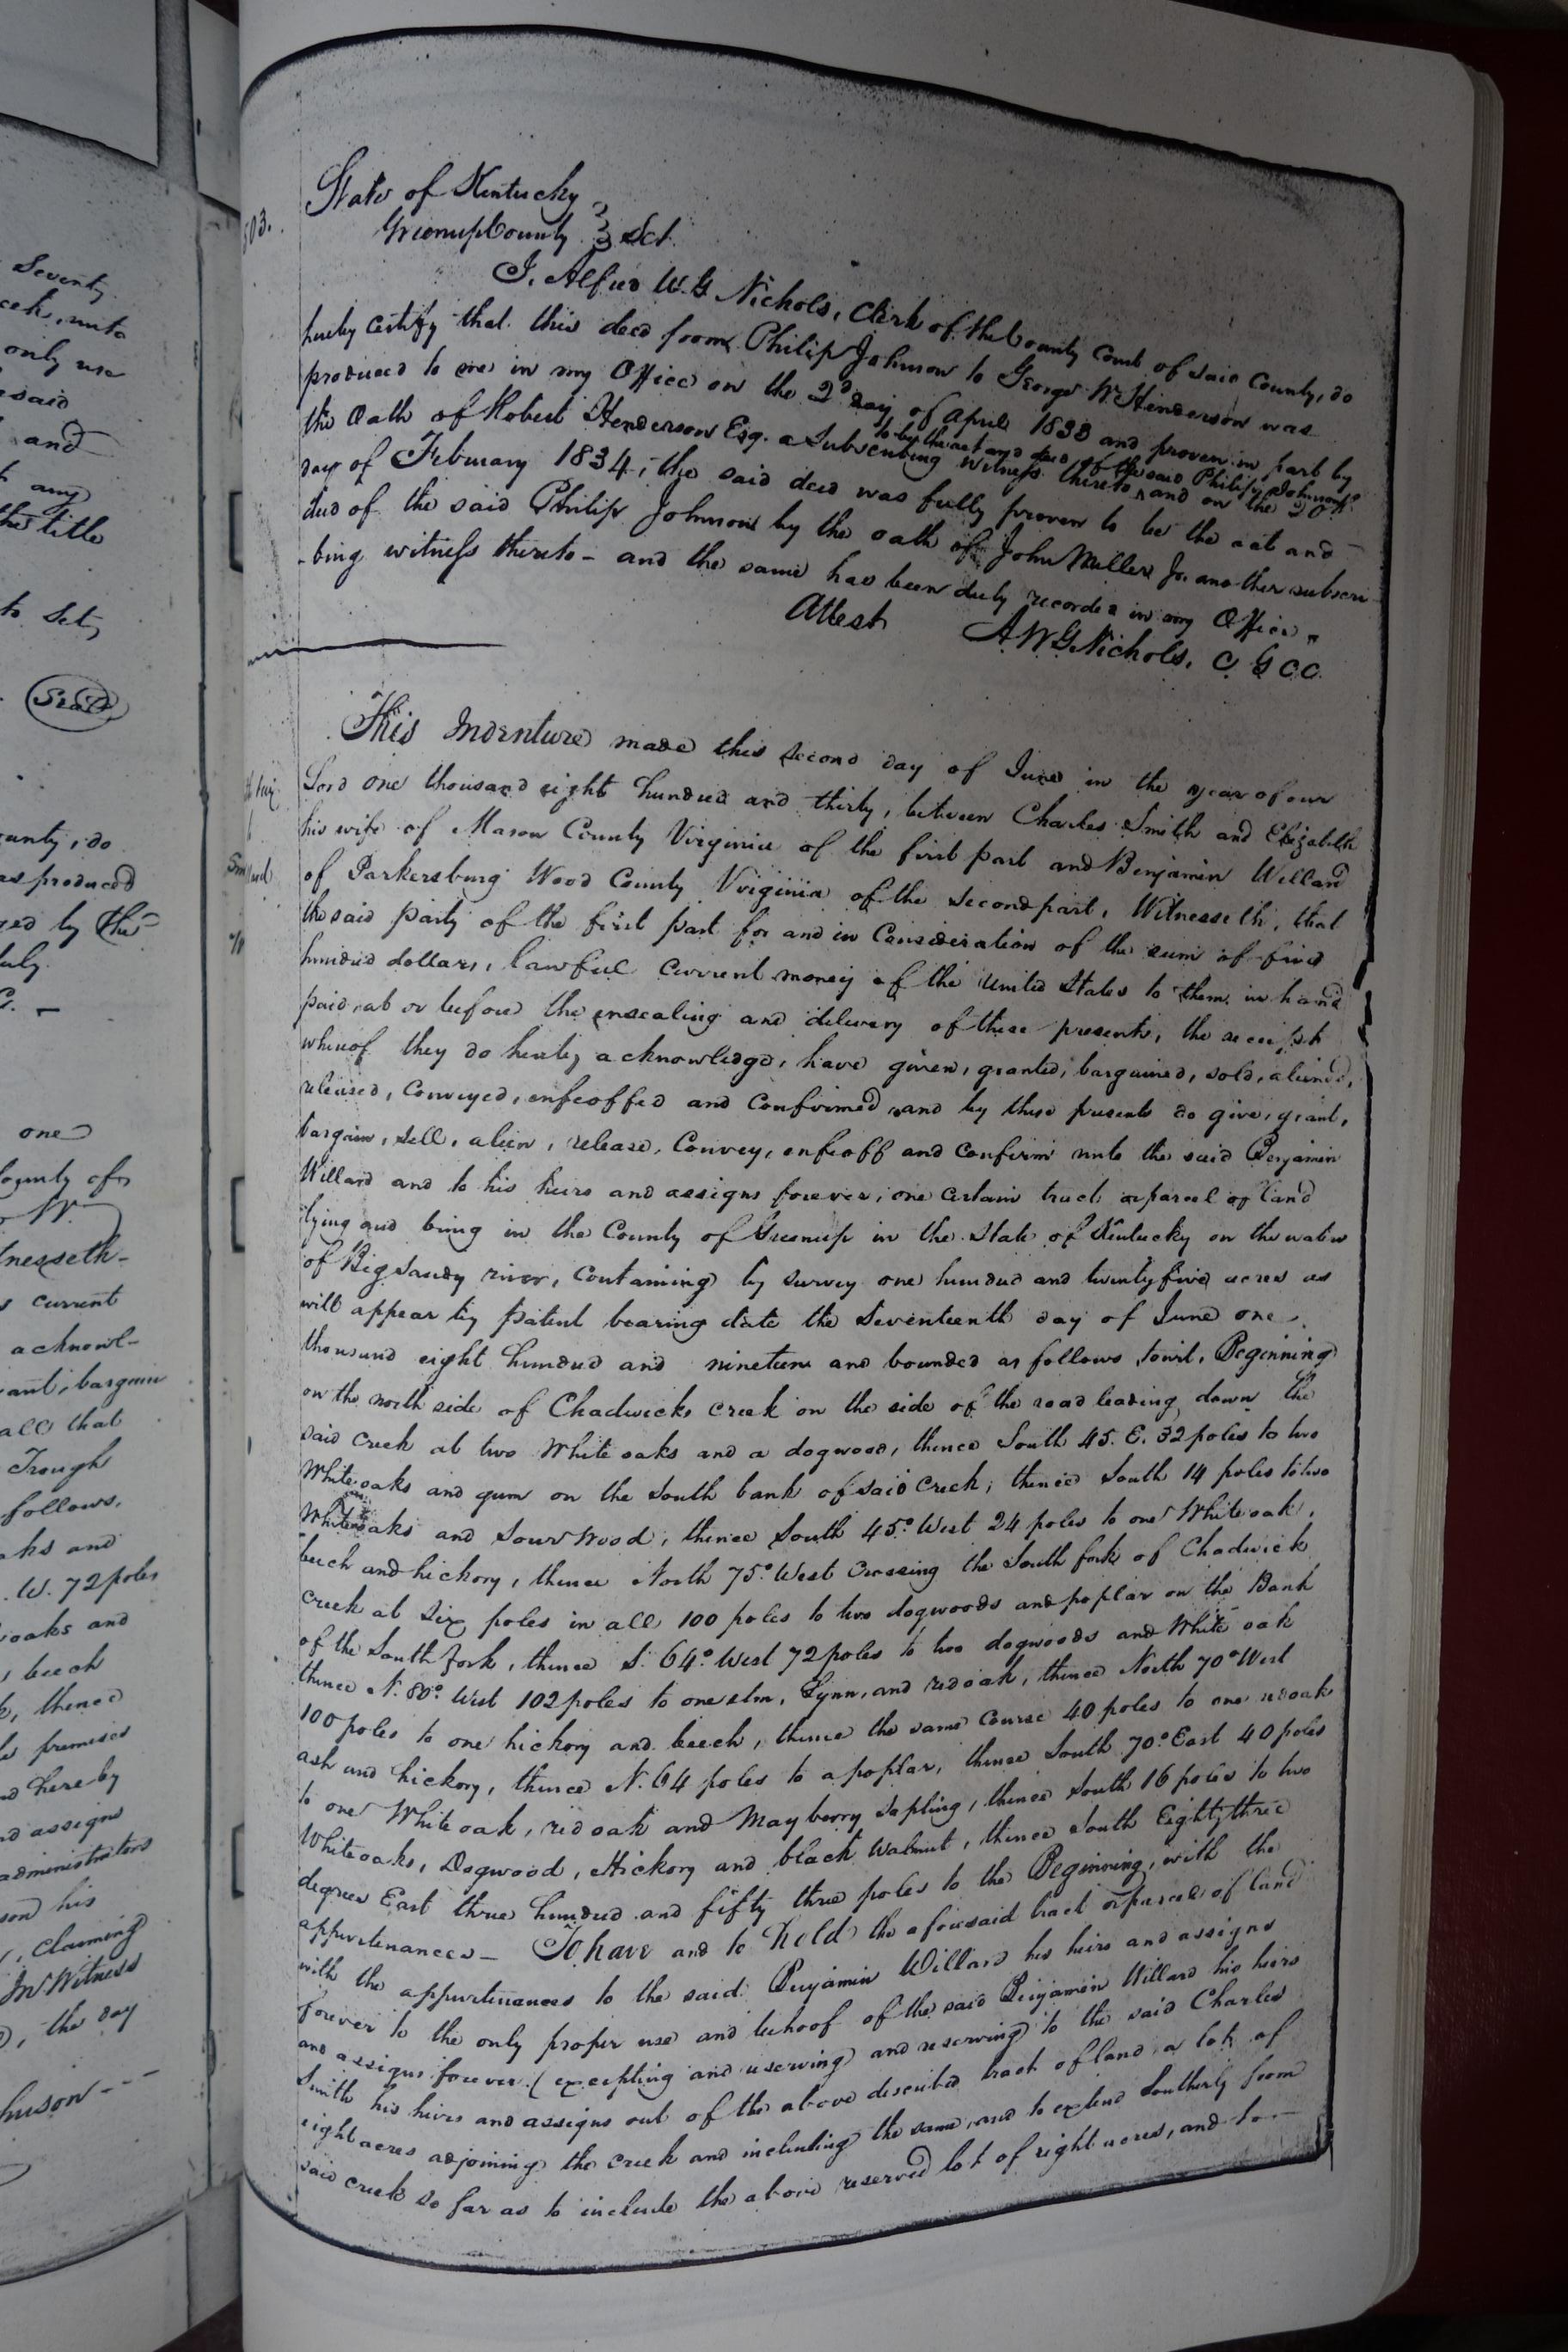 Seventy
only use
said
and
any
the title
to Set,
Seal
County, do
as produced
ged by the
duly
one
County of
W.
tnesseth-
s current
acknowl-
ant, bargain
all that
Trough
follows,
oaks and
W. 72 poles
oaks and
beech
thence
premises
d hereby
nd assigns
administrators
son his
, claiming
In Witness
, the day
hnson - - -
503.
State of Kentucky
Greenup County } Sct.
I, Alfred W. G Nichols, Clerk of the County Court of said County, do
hereby certify that this deed from Philip Johnson to George W. Henderson was
produced to me in my Office on the 2d day of April 1833 and proven in part by
the Oath of Robert Henderson Esq. a Subscribing witness thereto ^ to be the act and deed of the said Philip Johnson & and on the 20th
day of February 1834, the said deed was fully proven to be the act and
deed of the said Philip Johnson by the oath of John Miller Jr. another subscri
-bing witness thereto - and the same has been duly recorded in my Office.
Attest A W G Nichols, C G C C.
This Indenture made this second day of June in the year of our
Lord one thousand eight hundred and thirty, between Charles Smith and Elizabeth
his wife of Mason County Virginia of the first part and Benjamin Willard
of Parkersburg Wood County Virginia of the second part, Witnesseth, that
the said party of the first part for and in Consideration of the sum of five
hundred dollars, lawful current money of the United States to them in hand
paid, at or before the ensealing and delivery of these presents, the receipt
whereof they do hereby acknowledge, have given, granted, bargained, sold, aliened,
released, conveyed, enfeoffed and confirmed, and by these presents do give, grant,
bargain, sell, alien, release, Convey, enfeoff and confirm unto the said Benjamin
Willard and to his heirs and assigns forever, one certain tract or parcel of land
lying and being in the County of Greenup in the State of Kentucky on the waters
of Big Sandy river, containing by survey one hundred and twenty five acres as
will appear by patent bearing date the Seventeenth day of June one
thousand eight hundred and nineteen and bounded as follows, towit, Beginning
on the north side of Chadwicks creek on the side of the road leading down the
said creek at two White oaks and a dogwood, thence South 45. E. 32 poles to two
White oaks and gum on the South bank of said creek, thence South 14 poles to two
White oaks and Sour Wood, thence South 45.° West 24 poles to one White oak,
beech and hickory, thence North 75.° West Crossing the South fork of Chadwick
creek at six poles in all 100 poles to two dogwoods and poplar on the Bank
of the South fork, thence S. 64.° West 72 poles to two dogwoods and White oak
thence N. 80.° West 102 poles to one elm, Lynn, and red oak, thence North 70° West
100 poles to one hickory and beech, thence the same Course 40 poles to one red oak
ash and hickory, thence N. 64 poles to a poplar, thence South 70.° East 40 poles
to one White oak, red oak and May berry Sapling, thence South 16 poles to two
White oaks, Dogwood, Hickory and black Walnut, thence South Eighty three
degrees East three hundred and fifty three poles to the Beginning, with the
appurtenances - To have and to hold the aforesaid tract or parcel of land
with the appurtenances to the said Benjamin Willard his heirs and assigns
forever to the only proper use and behoof of the said Benjamin Willard his heirs
and assigns forever. (excepting and reserving) and reserving to the said Charles
Smith his heirs and assigns out of the above described tract of land a lot of
eight acres adjoining the creek and including the same, and to extend Southerly from
said creek so far as to include the above reserved lot of eight acres, and to